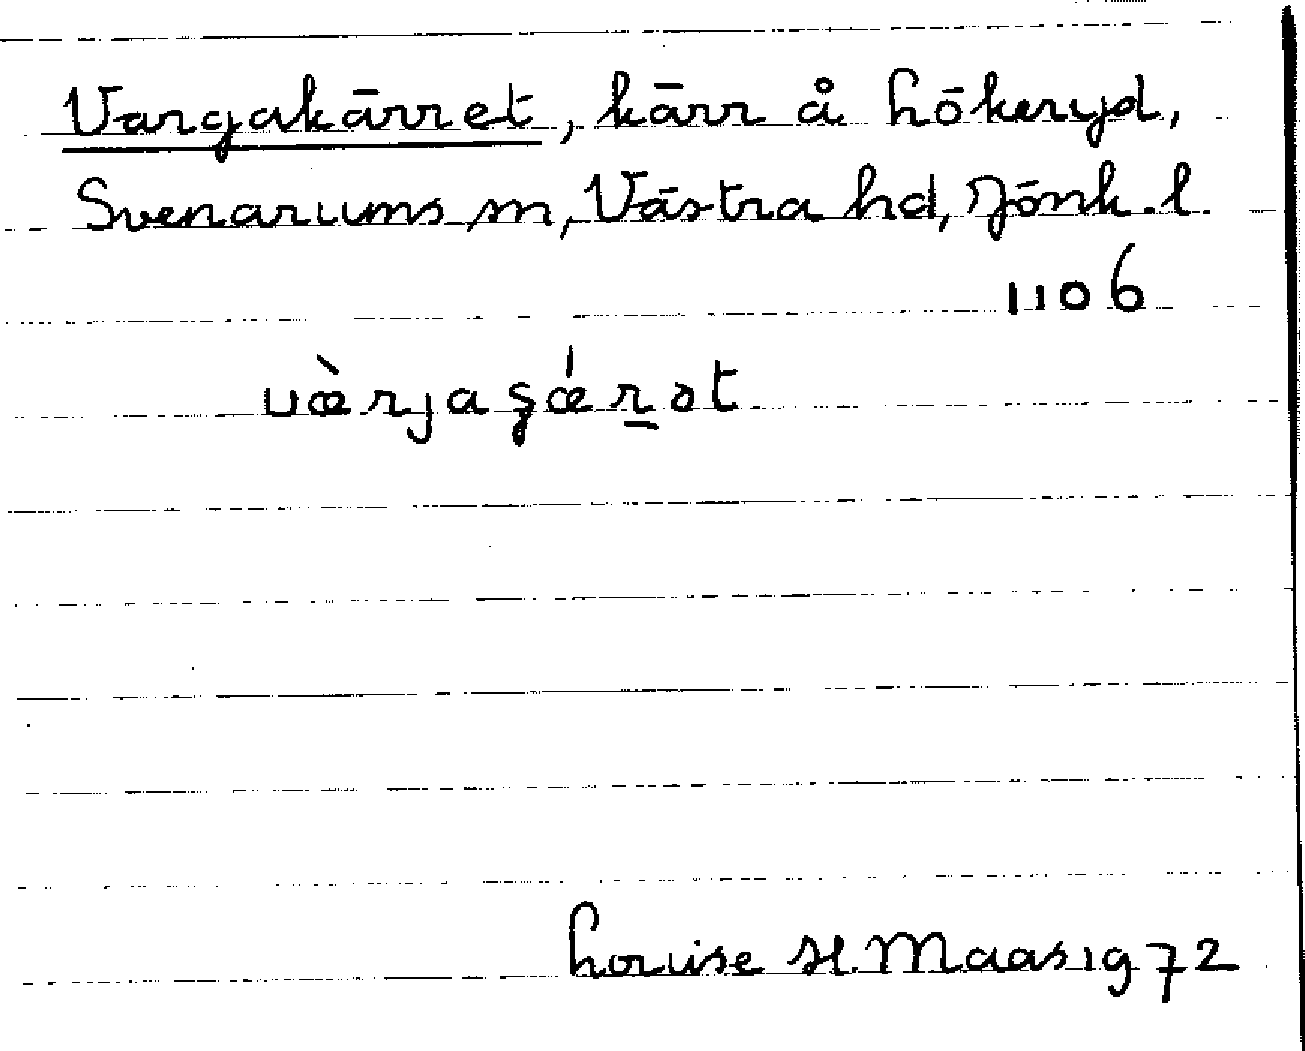 Vargakärret, kärr å Lökeryd,
Svenarums sn, Västra hd, Jönk. l.
1106
Louise H. Maas 1972